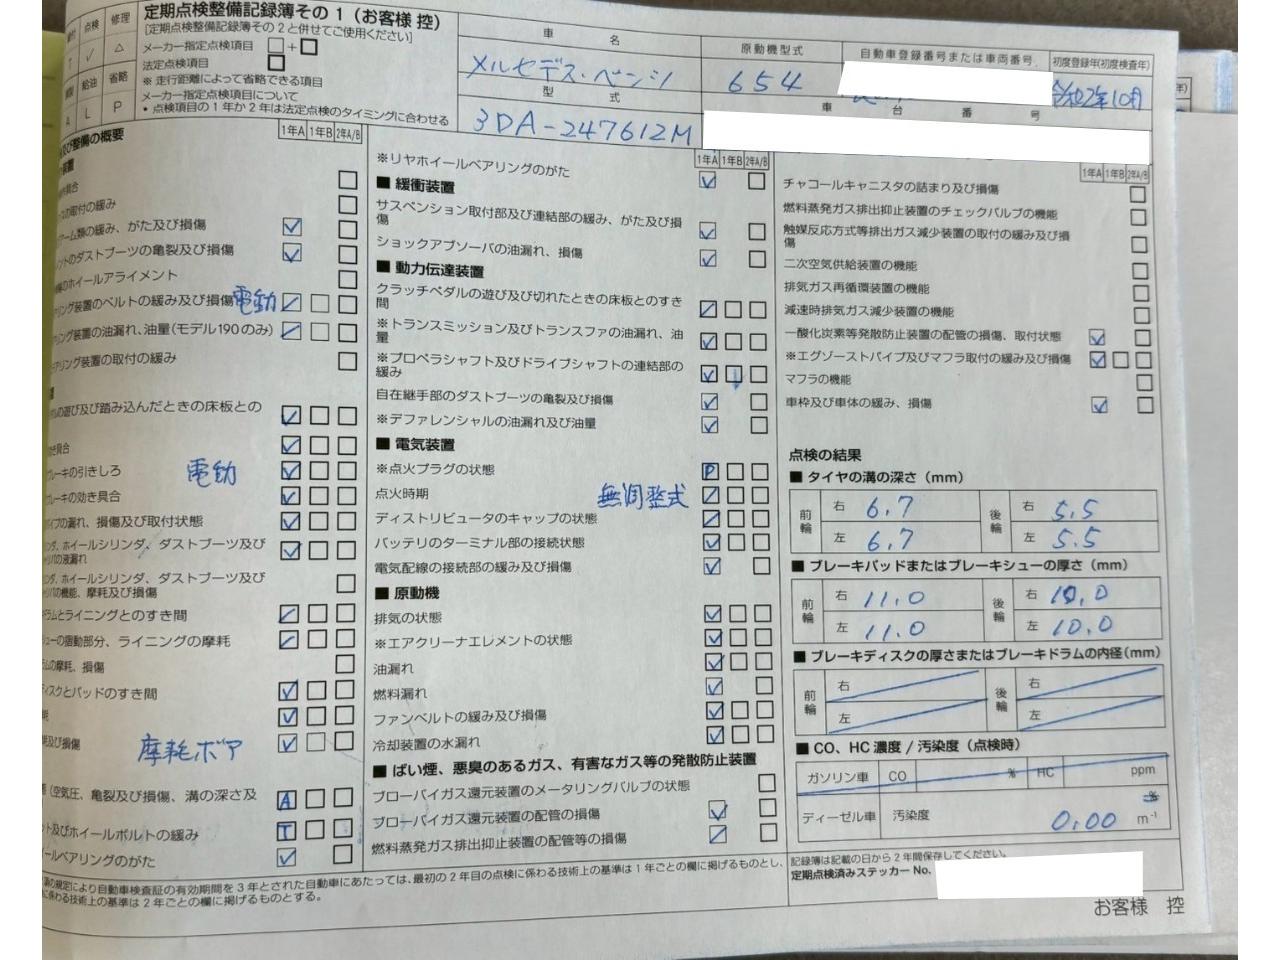 定期点検整備記録簿その1（お客様 控）
[定期点検整備記録簿その2と併せてご使用ください]
点検 修理
✓ △
給油 省略
A L P
メーカー指定点検項目 □+□
法定点検項目 □
※ 走行距離によって省略できる項目
メーカー指定点検項目について
・点検項目の1年か2年は法定点検のタイミングに合わせる
車 名
メルセデス・ベンツ
型 式
3DA-247612M
原動機型式
654
自動車登録番号または車両番号
初度登録年(初度検査年)
令和2年10月
車 台 番 号
及び整備の概要
1年A 1年B 2年A/B
装置
具合
の取付の緩み
アーム類の緩み、がた及び損傷
ントのダストブーツの亀裂及び損傷
のホイールアライメント
リング装置のベルトの緩み及び損傷 電動
リング装置の油漏れ、油量(モデル190のみ)
リング装置の取付の緩み
ルの遊び及び踏み込んだときの床板との
き具合
ブレーキの引きしろ 電動
ブレーキの効き具合
パイプの漏れ、損傷及び取付状態
ンダ、ホイールシリンダ、ダストブーツ及び
ャリパの液漏れ
ンダ、ホイールシリンダ、ダストブーツ及び
ャリパの機能、摩耗及び損傷
ドラムとライニングとのすき間
シューの摺動部分、ライニングの摩耗
ラムの摩耗、損傷
ディスクとパッドのすき間
耗
耗及び損傷 摩耗ボア
(空気圧、亀裂及び損傷、溝の深さ及 A
ット及びホイールボルトの緩み T
ールベアリングのがた
1年A 1年B 2年A/B
※リヤホイールベアリングのがた
■ 緩衝装置
サスペンション取付部及び連結部の緩み、がた及び損
傷
ショックアブソーバの油漏れ、損傷
■ 動力伝達装置
クラッチペダルの遊び及び切れたときの床板とのすき
間
※トランスミッション及びトランスファの油漏れ、油
量
※プロペラシャフト及びドライブシャフトの連結部の
緩み
自在継手部のダストブーツの亀裂及び損傷
※デファレンシャルの油漏れ及び油量
■ 電気装置
※点火プラグの状態 P
点火時期 無調整式
ディストリビュータのキャップの状態
バッテリのターミナル部の接続状態
電気配線の接続部の緩み及び損傷
■ 原動機
排気の状態
※エアクリーナエレメントの状態
油漏れ
燃料漏れ
ファンベルトの緩み及び損傷
冷却装置の水漏れ
■ ばい煙、悪臭のあるガス、有害なガス等の発散防止装置
ブローバイガス還元装置のメータリングバルブの状態
ブローバイガス還元装置の配管の損傷
燃料蒸発ガス排出抑止装置の配管等の損傷
1年A 1年B 2年A/B
チャコールキャニスタの詰まり及び損傷
燃料蒸発ガス排出抑止装置のチェックバルブの機能
触媒反応方式等排出ガス減少装置の取付の緩み及び損
傷
二次空気供給装置の機能
排気ガス再循環装置の機能
減速時排気ガス減少装置の機能
一酸化炭素等発散防止装置の配管の損傷、取付状態
※エグゾーストパイプ及びマフラ取付の緩み及び損傷
マフラの機能
車枠及び車体の緩み、損傷
点検の結果
■ タイヤの溝の深さ（mm）
前輪 右 6.7 後輪 右 5.5
左 6.7 左 5.5
■ ブレーキパッドまたはブレーキシューの厚さ（mm）
前輪 右 11.0 後輪 右 10.0
左 11.0 左 10.0
■ ブレーキディスクの厚さまたはブレーキドラムの内径(mm)
前輪 右 後輪 右
左 左
■ CO、HC 濃度 / 汚染度（点検時）
ガソリン車 CO % HC ppm
ディーゼル車 汚染度 0.00 % m⁻¹
の規定により自動車検査証の有効期間を3年とされた自動車にあたっては、最初の2年目の点検に係わる技術上の基準は1年ごとの欄に掲げるものとし、
に係わる技術上の基準は2年ごとの欄に掲げるものとする。
記録簿は記載の日から2年間保存してください。
定期点検済みステッカー No.
お客様 控